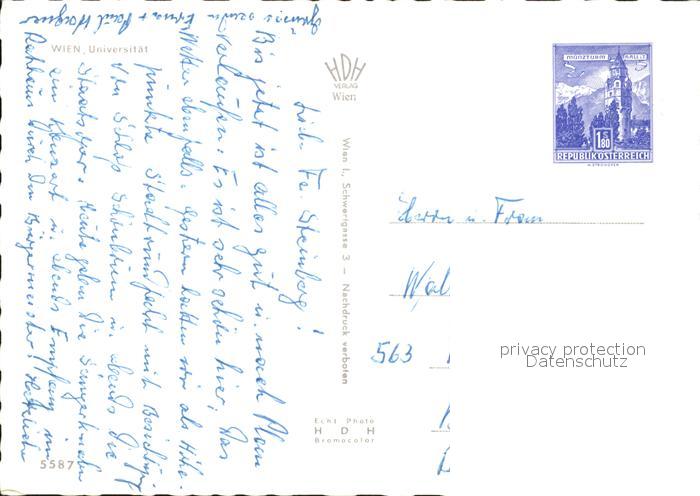 WIEN, Universität
Liebe Fa. Steinberg!
Bis jetzt ist alles gut u. nach Plan
verlaufen. Es ist sehr schön hier, das
Wetter ebenfalls. Gestern hatten wir als Höhe-
punkte Stadtrundfahrt mit Besichtigung
von Schloß Schönbrunn u. abends die
Staatsoper. Heute geben die Sängerknaben
ein Konzert u. abends Empfang im
Rathaus durch den Bürgermeister. Herzliche
Grüsse senden Erna + Paul Wagner
5587
HDH
VERLAG
Wien
Wien I., Schwertgasse 3 — Nachdruck verboten
Echt Photo
HDH
Bromocolor
MÜNZTURM HALL I.T.
1 S 80
REPUBLIK ÖSTERREICH
Herrn u. Frau
Wal
563
privacy protection
Datenschutz